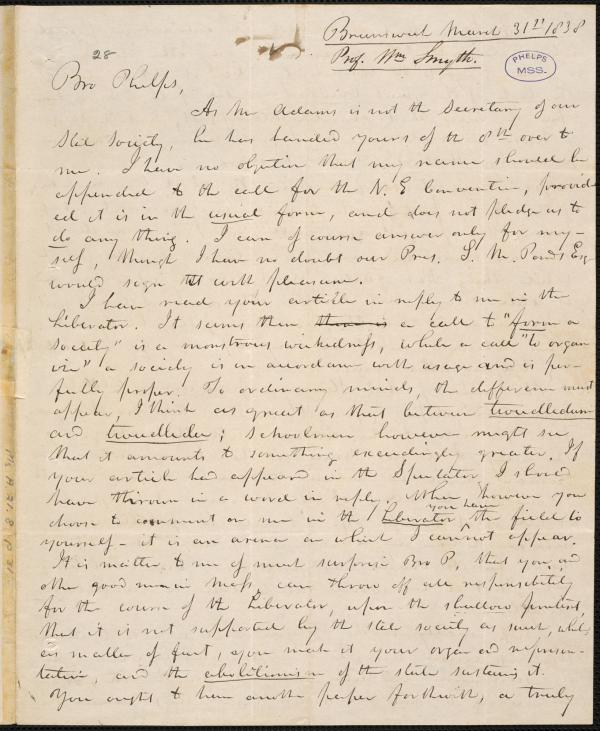 Brunswick March 31st 1838
Prof. Wm Smyth.
PHELPS
MSS.
28
Bro Phelps,
As Mr Adams is not the Secretary of our
State Society, he has handed yours of the 8th over to
me. I have no objection that my name should be
appended to the call for the N. E Convention, provid-
ed it is in the usual form, and does not pledge us to
do any thing. I can of course answer only for my-
self, though I have no doubt our Pres. S. M. Pond Esq
would sign it with pleasure.
I have read your article in reply to me in the
Liberator. It seems then a call to "form a
society" is a monstrous wickedness, while a call "to organ
ize" a society is in accordance with usage and is per-
fectly proper. To ordinary minds, the difference must
appear, I think as great as that between tweedledum
and tweedledee; schoolmen however might see
that it amounts to something exceedingly greater. If
your article had appeared in the Spectator, I should
have thrown in a word in reply. When however you
choose to comment on me in the Liberator you have the field to
yourself - it is an arena on which I cannot appear.
It is matter to me of much surprise Bro P, that you and
other good men in Mass, can throw off all responsibility
for the course of the Liberator, upon the shallow pretext,
that it is not supported by the state society as such, while
as matter of fact, you make it your organ and represen-
tative, and the abolitionism of the state sustains it.
You ought to have another paper forthwith, a truly